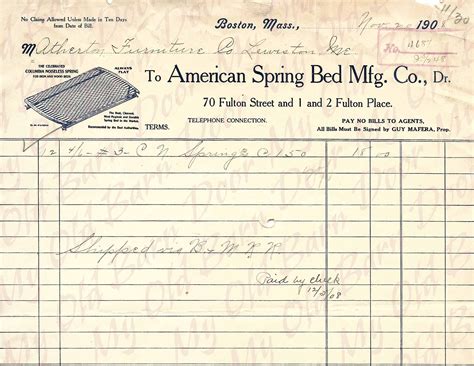 No Claims Allowed Unless Made in Ten Days
from Date of Bill.
11/20
Boston, Mass., Nov 2 1908
M Atherton Furniture Co Lewiston, Me.
THE CELEBRATED
COLUMBIA NOISELESS SPRING
FOR IRON AND WOOD BEDS
ALWAYS
FLAT
The Best, Cleanest,
Most Hygienic and Durable
Spring Bed in the Market.
Recommended by the Best Authorities.
To American Spring Bed Mfg. Co., Dr.
70 Fulton Street and 1 and 2 Fulton Place.
TELEPHONE CONNECTION.
PAY NO BILLS TO AGENTS,
All Bills Must Be Signed by GUY MAFERA, Prop.
TERMS.
12 4/6 - #3 - C N Springs @ 1.50 18.00
Shipped via B + M. R. R.
Paid by check
12/3/08
My Old Barn Door